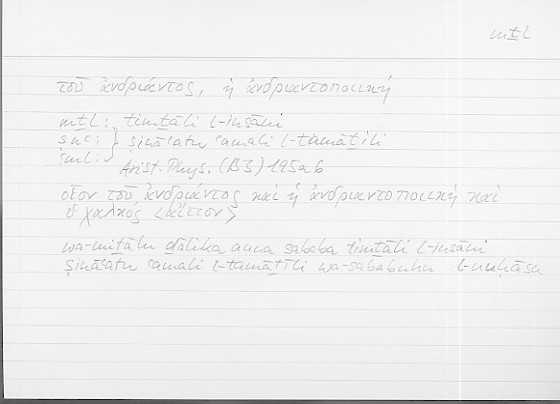 mṯl
τοῦ ἀνδριάντος, ἡ ἀνδριαντοποιική
mṯl: timṯāli l-insāni
ṣnʿ: } ṣināʿatu ʿamali l-tamāṯīli
ʿml:
Arist. Phys. (B3) 195a6
οἷον τοῦ ἀνδριάντος καὶ ἡ ἀνδριαντοποιικὴ καὶ
ὁ χαλκός <αἴτιον>
wa-miṯālu ḏālika anna sababa timṯāli l-insāni
ṣināʿatu ʿamali l-tamāṯīli wa-sababuhu l-nuḥāsu